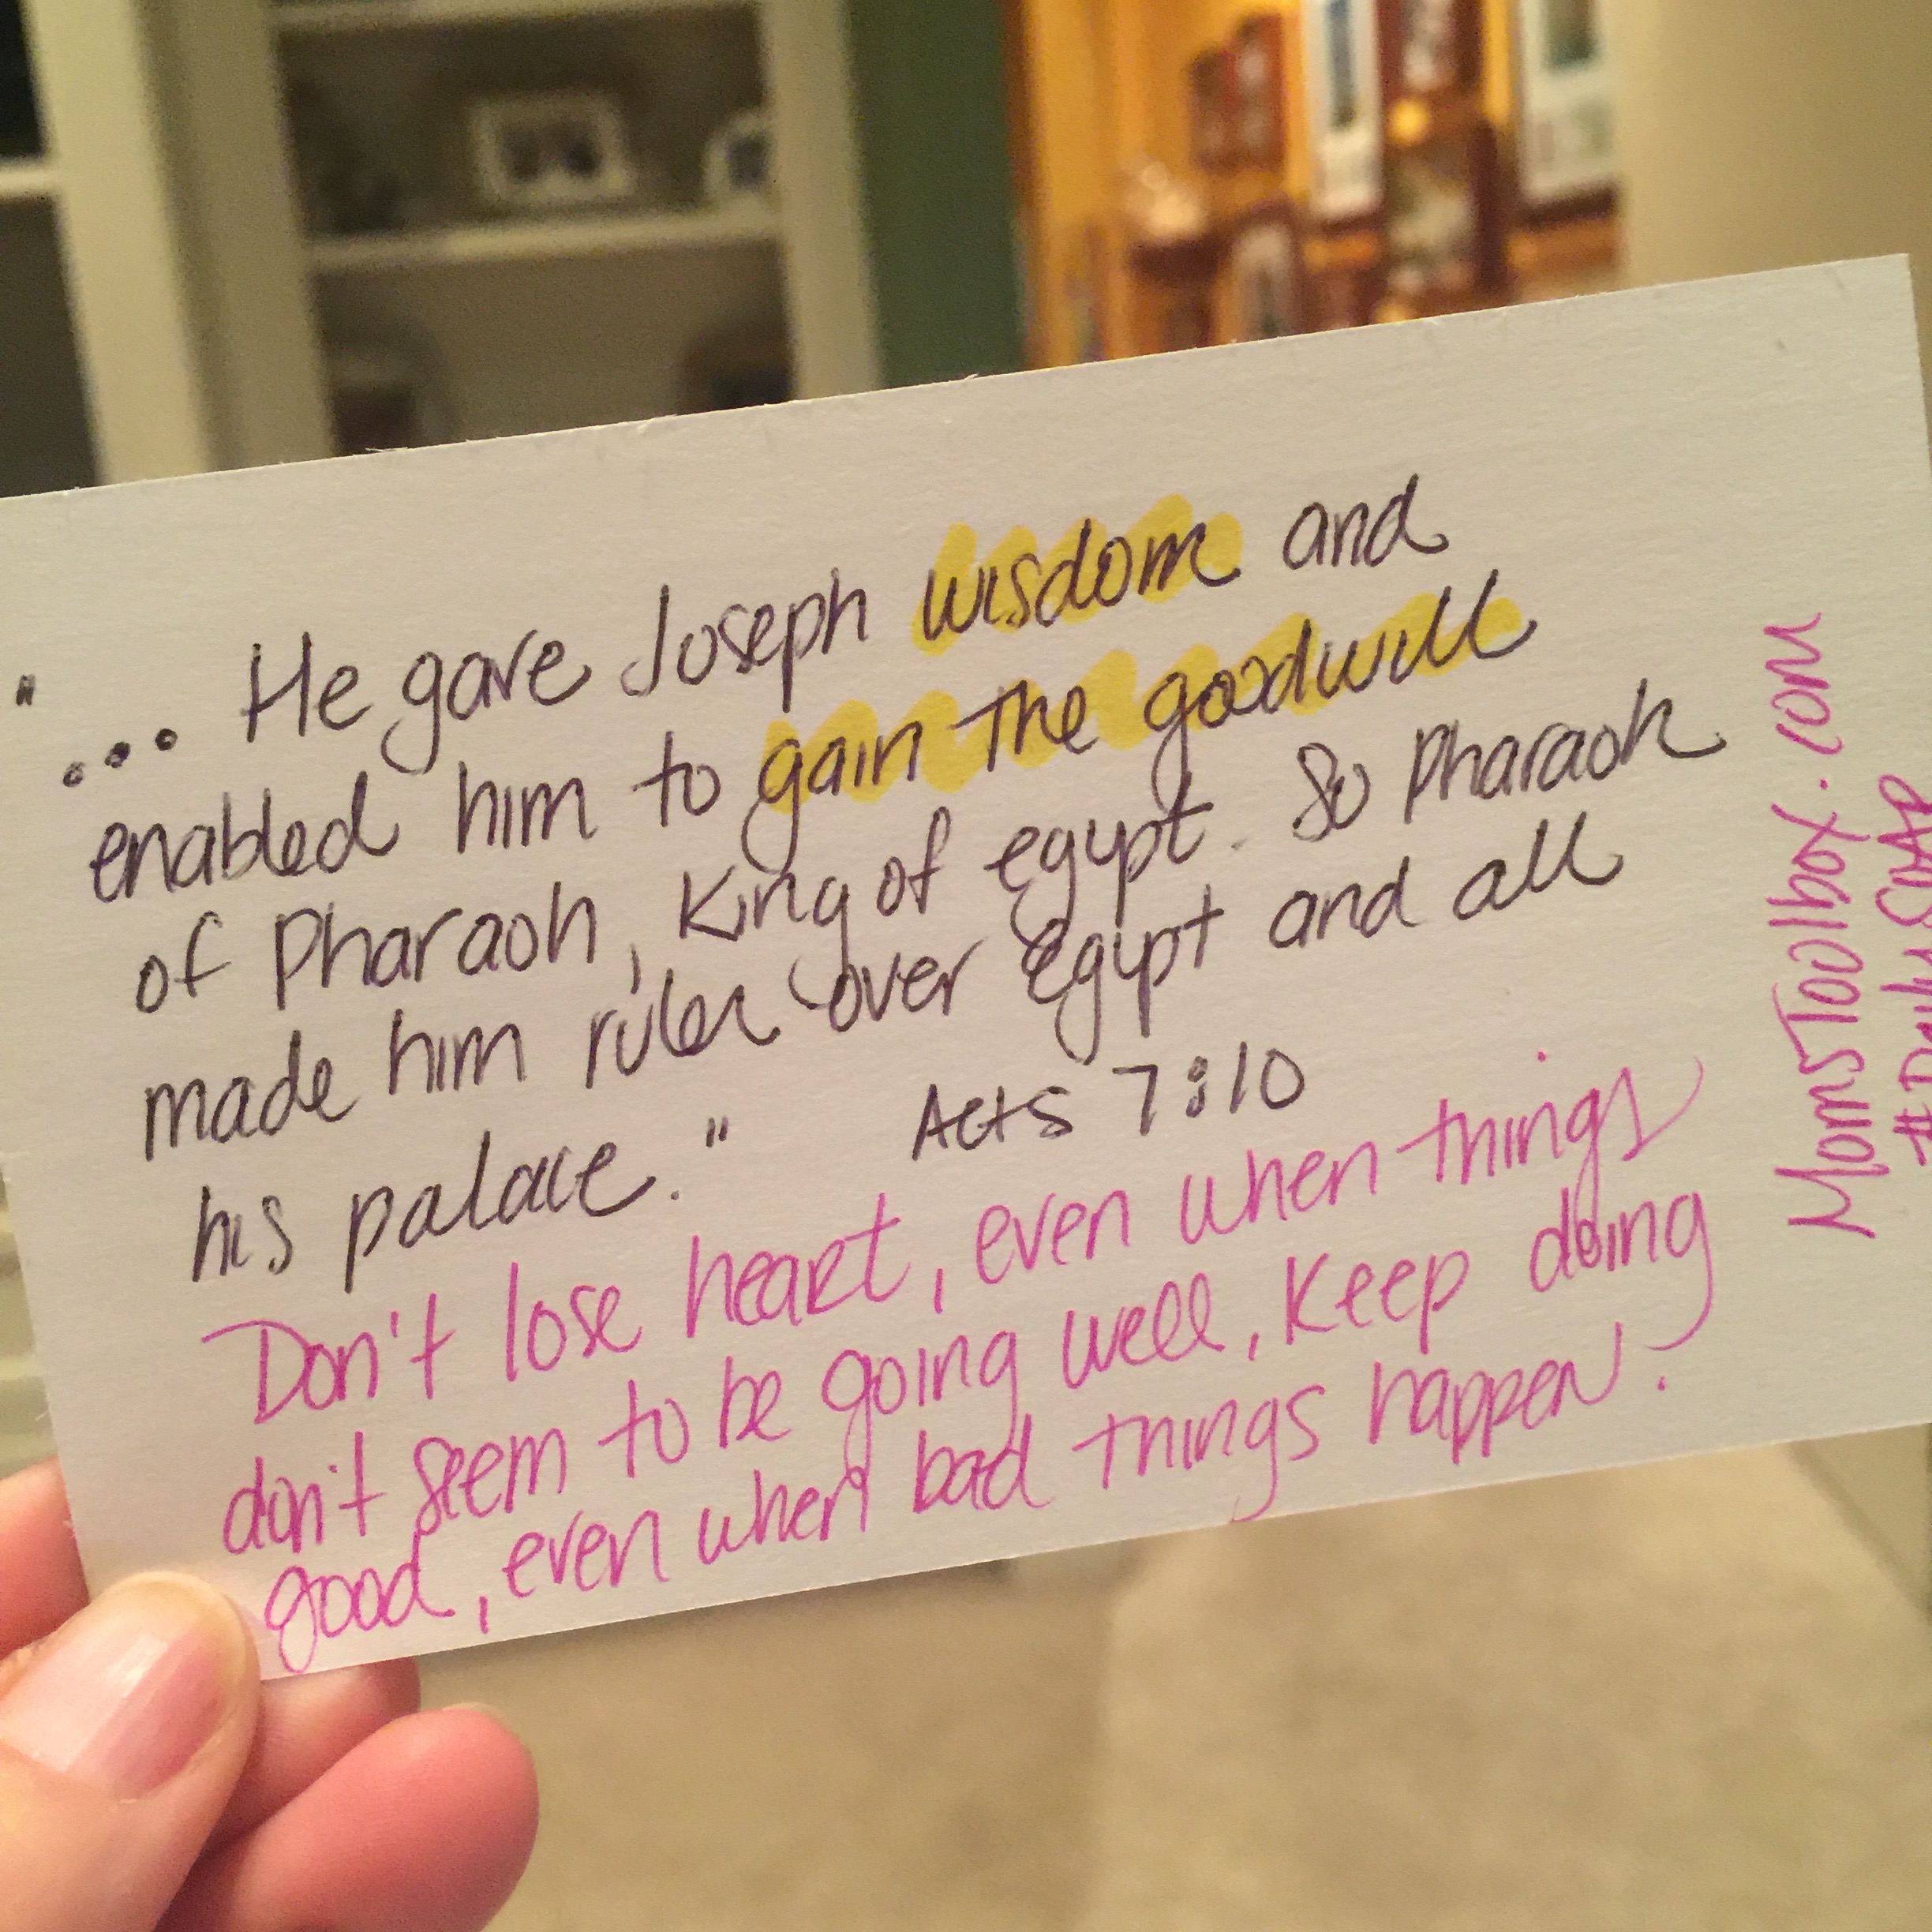 "... He gave Joseph wisdom and
enabled him to gain the goodwill
of Pharaoh, King of egypt. So Pharaoh
made him ruler over Egypt and all
his palace." Acts 7:10
Don't lose heart, even when things
don't seem to be going well, keep doing
good, even when bad things happen.
MomsToolbox.com
#DailySOAP